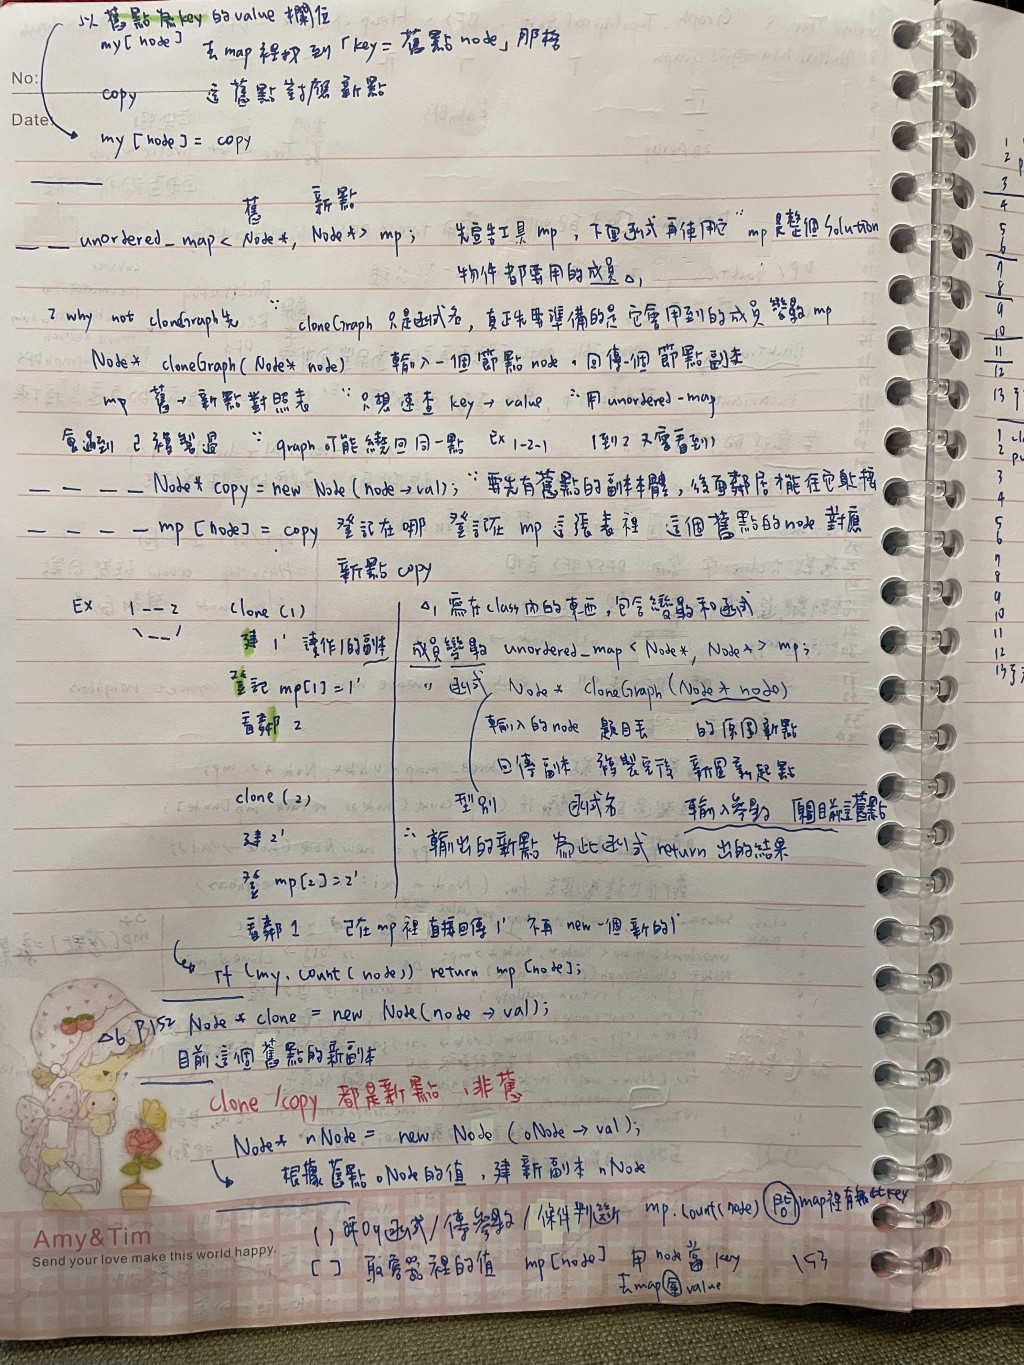 以舊點為key的value欄位
my[node] 去map裡找到「key=舊點node」那格
No:
copy 這舊點對應新點
Date:
my[node]= copy
舊 新點
_ _ unordered_map< Node*, Node*> mp; 先宣告工具mp,下面函式再使用它 ∵ mp是整個Solution
物件都要用的成員△1
? why not cloneGraph先 ∵ cloneGraph 只是函式名,真正先要準備的是它會用到的成員變數mp
Node* cloneGraph(Node* node) 輸入一個節點node,回傳一個節點副本
mp 舊→新點對照表 ∵只想速查 key→value ∴用unordered-map
會遇到已複製過 ∵ graph可能繞回同一點 Ex 1-2-1 (到2又會看到1)
_ _ _ _ Node* copy = new Node(node→val); ∵要先有舊點的副本本體,後面鄰居才能往它身上接
_ _ _ _ mp[node] = copy 登記在哪 登記在mp這張表裡 這個舊點的node對應
新點copy
Ex 1--2 clone(1)
建 1' 讀作1的副本
登記 mp[1]=1'
看鄰 2
clone(2)
建2'
登 mp[2]=2'
△1 寫在class內的東西,包含變數和函式
成員變數 unordered_map< Node*, Node*> mp;
〃 函式 Node* cloneGraph(Node* node)
輸入的node 題目丟 的原圖新點
回傳副本 複製完後 新圖新起點
型別 函式名 輸入參數 原圖目前這舊點
∴ 輸出的新點 為此函式return出的結果
看鄰1 已在mp裡 直接回傳1' 不再new一個新的1'
if (my.count(node)) return mp[node];
△6 P152 Node* clone = new Node(node→val);
目前這個舊點的新副本
clone/copy 都是新點,非舊
Node* nNode = new Node(oNode→val);
根據舊點oNode的值,建新副本nNode
( ) 呼叫函式/傳參數/條件判斷 mp.count(node) 問map裡有無此key
[ ] 取容器裡的值 mp[node] 用node當key 153
去map查value
Amy&Tim
Send your love make this world happy.